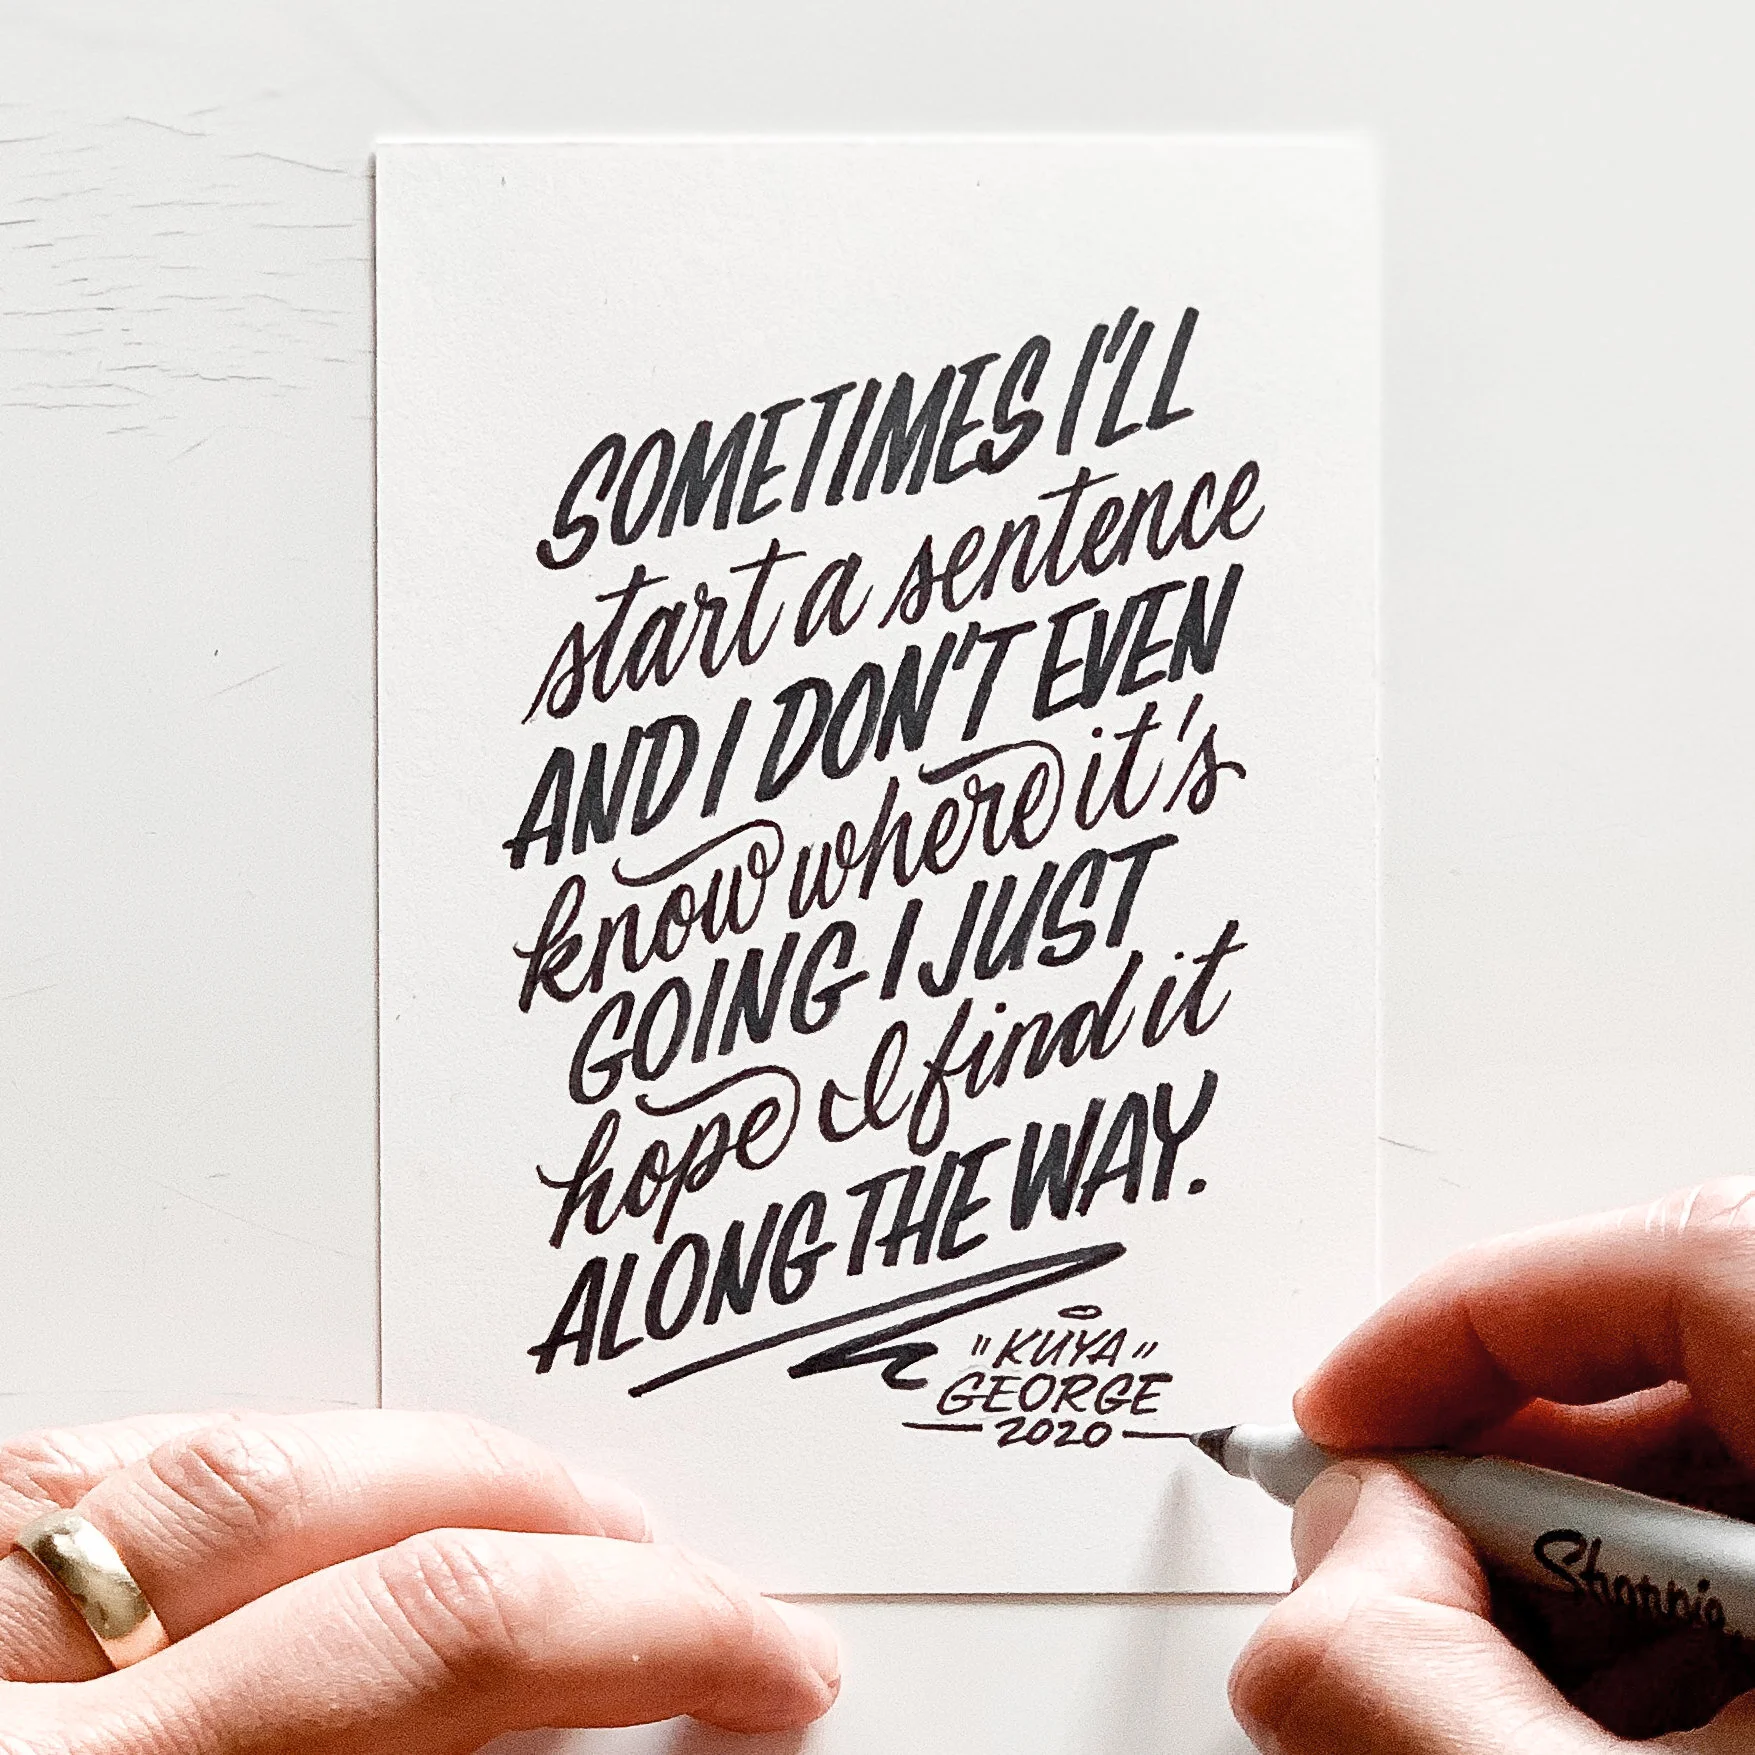 SOMETIMES I'LL
start a sentence
AND I DON'T EVEN
know where it's
GOING I JUST
hope I find it
ALONG THE WAY.
"KUYA"
GEORGE
2020
Sharpie